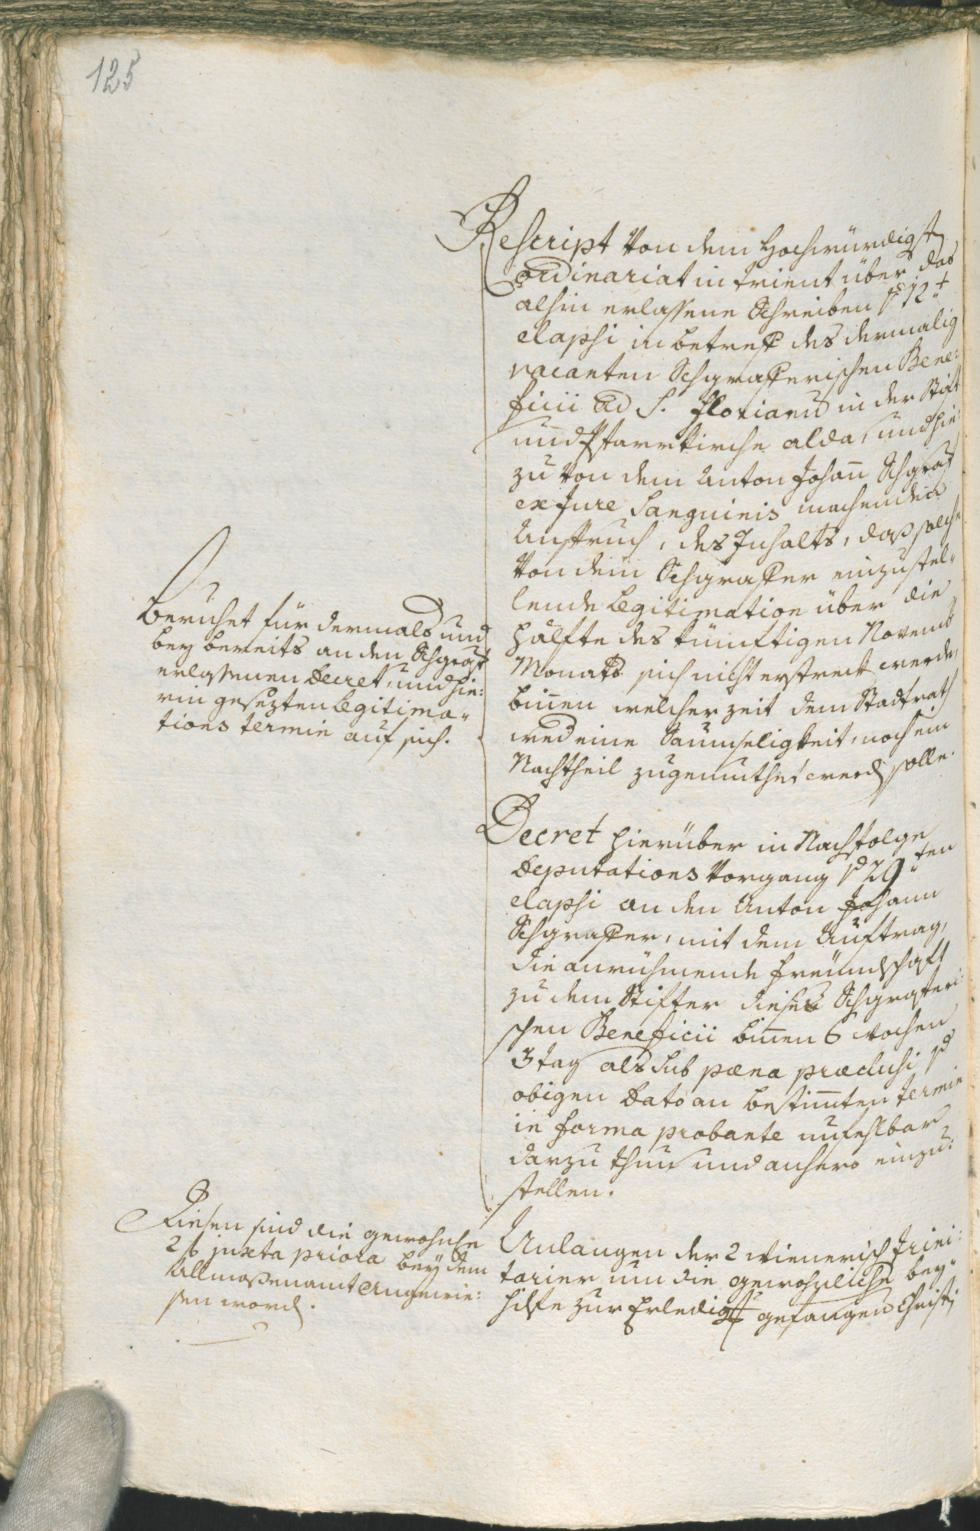 125
Rescript von dem Hochwürdigst
Ordinariat in Trient über das
alhin erlassene Schreiben sub 12t
elapsi in betreff des dermalig
vacanten Schgrafferischen Bene-
ficii ad S. Florianum in der Stift
und Pfarrkirche alda, und hie
zu von dem Anton Johañ Schgraf
ex Jure Sanguinis machenden
Anspruch, des Inhalts, daß solche
von dem Schgraffer einzustel-
lende Legitimation über die
Hälfte des künftigen Novemb
Monats sich nicht erstreckt werde,
biñen welcher zeit dem Stadtrath
wed eine Saumseligkeit, noch ein
Nachtheil zugemuthet werd solle.
Beruhet für dermals und
bey bereits an den Schgraf
erlassenen Decret, und hie:
rin gesezten Legitima-
tions termin auf sich.
Decret hierüber in Nachfolge
Deputations Vorgang sub 29ten
elapsi an den Anton Johann
Schgraffer, mit dem Auftrag,
die anrühmende Freundschaft
zu dem Stifter dieses Schgrafferi:
schen Beneficii biñen 6 wochen
3 tag als sub pœna præclusi
obigen Dato an bestim̃ten Termin
in forma probante unfehlbar
darzu thun und anhero einzu:
stellen.
Anlangen der 2 wienerisch Trini:
tarier um die gewohnliche bey-
hilfe zur Erledig gefangen Christ
Diesen sind die gewohnliche
2 f juxta priora bey dem
Allmosenamt angewie:
sen word.